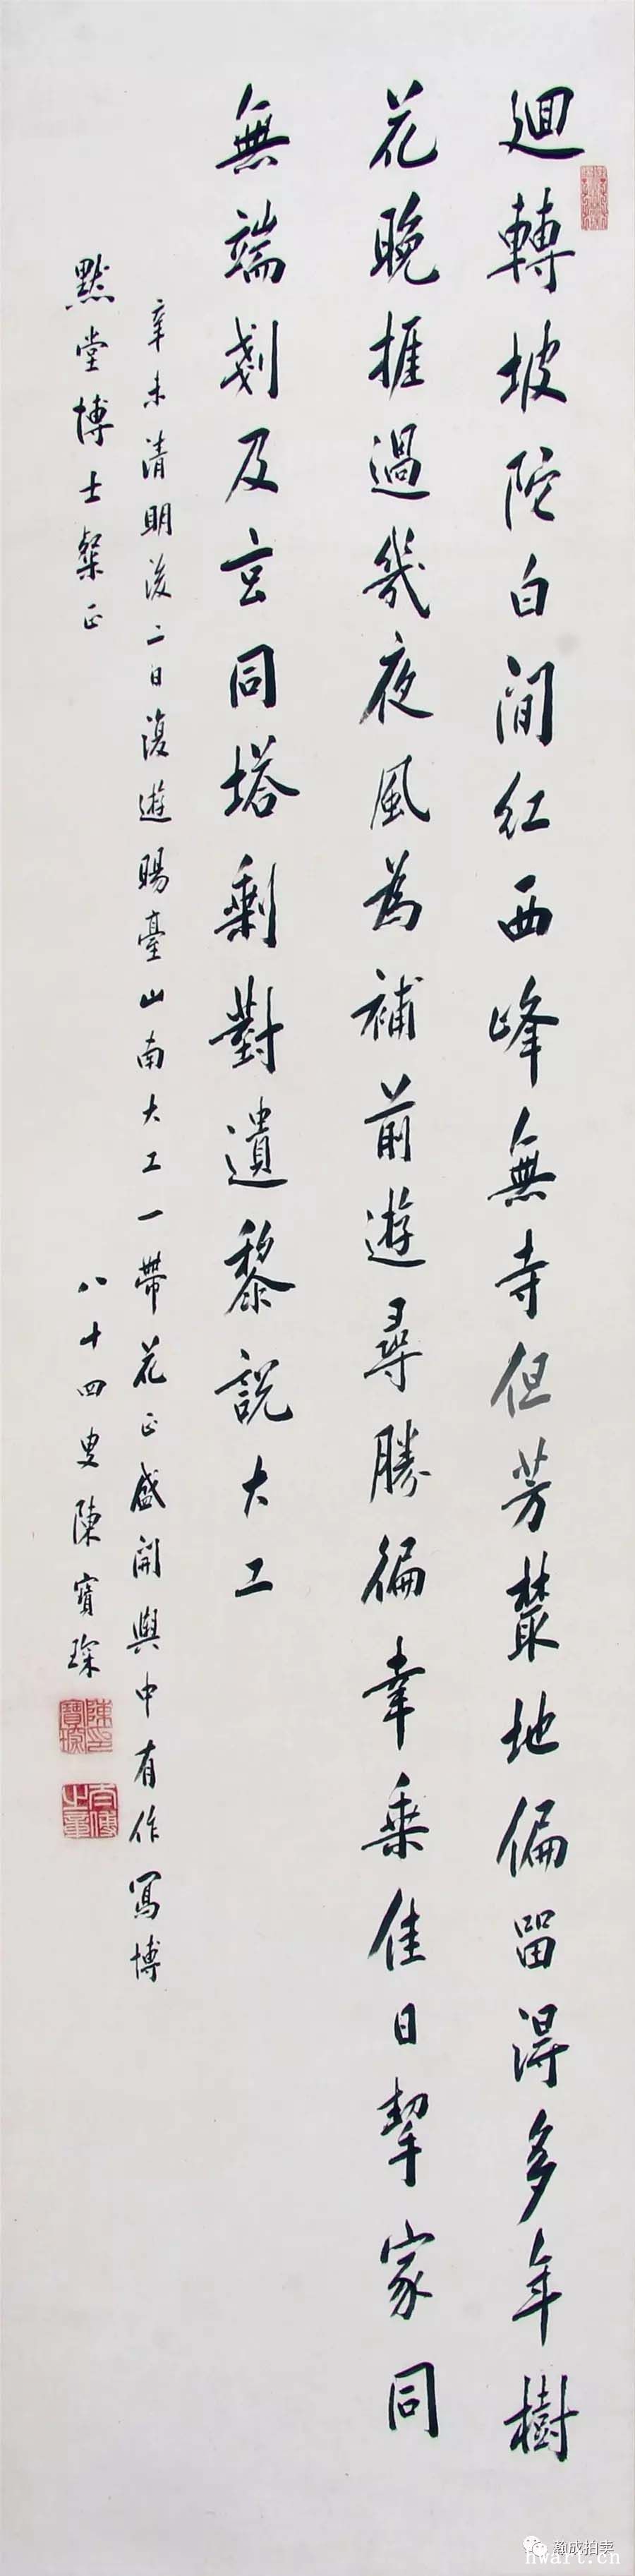 迴轉坡陀白間紅西峰無寺但芳叢地偏留得多年樹
花晚捱過幾夜風為補前遊尋勝徧幸乘佳日挈家同
無端剗及玄同塔剩對遺黎說大工
辛未清明後二日復遊暘臺山南大工一帶花正盛開輿中有作寫博
黙堂博士粲正
八十四叟陳寶琛
陳印寶琛
太傅之章
瀚成拍卖
hwart.cn